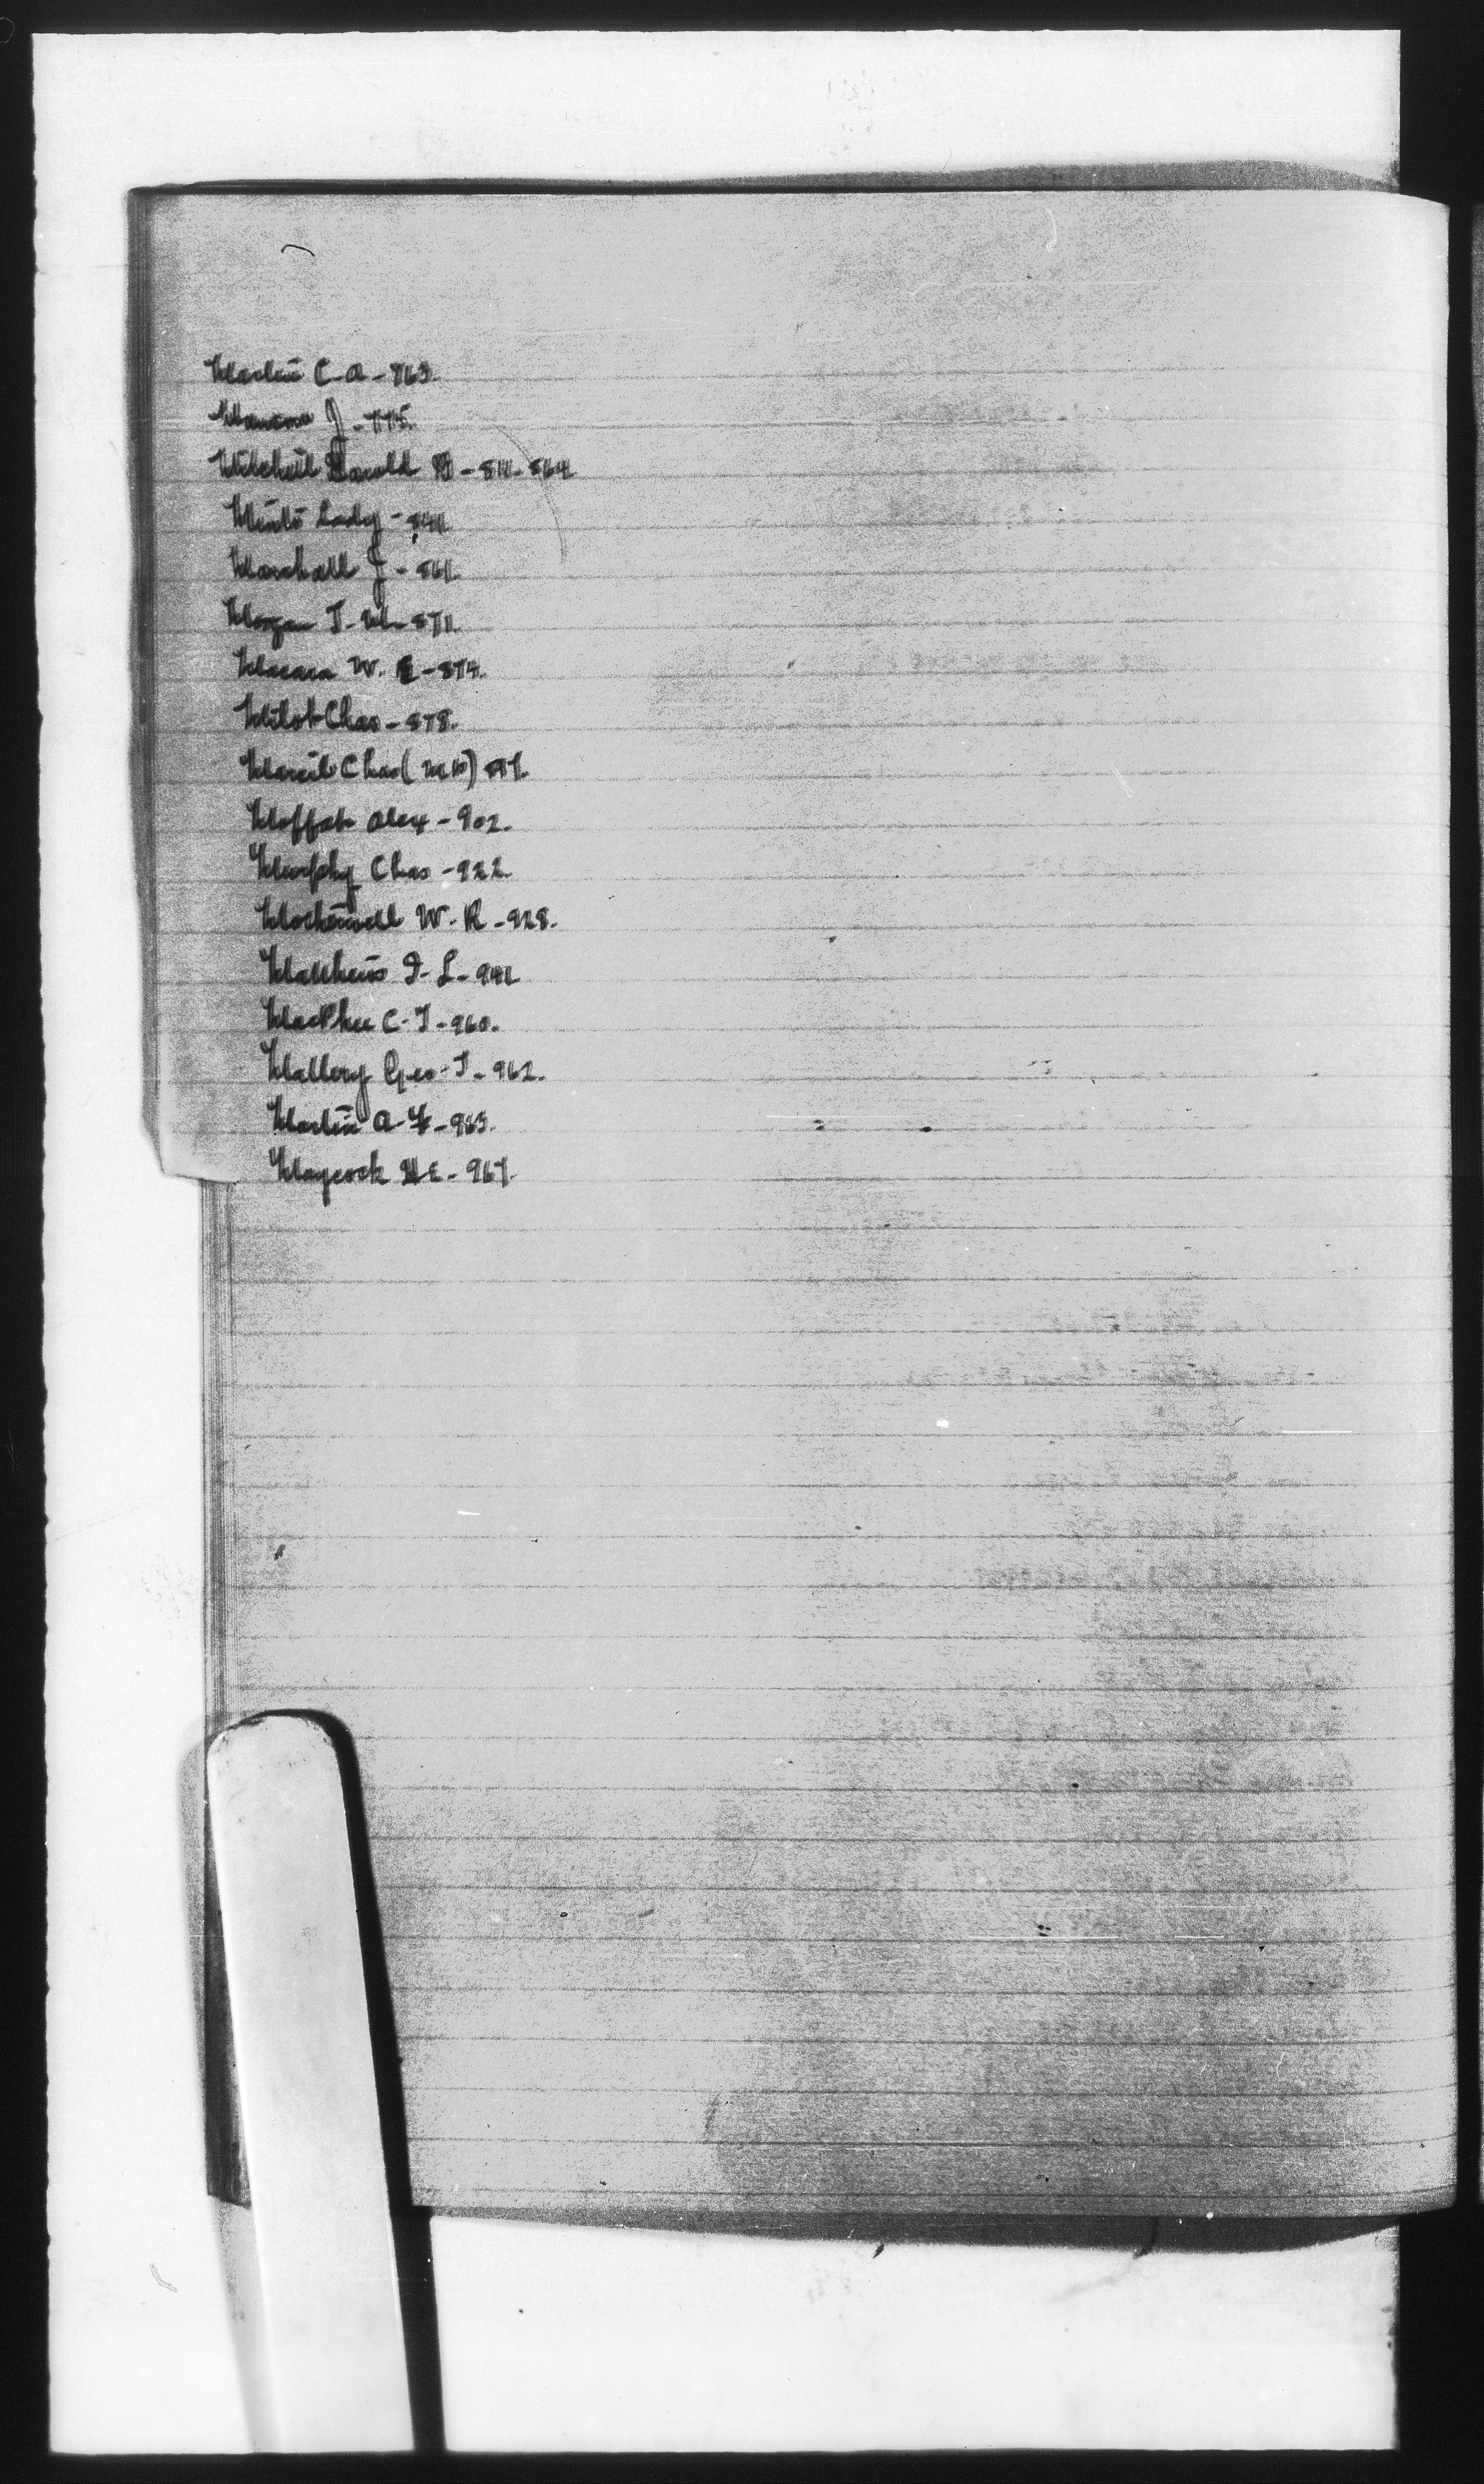 Martin C-A-763.
Manson J-775.
Mitchell Harold B-811-864
Minto Lady-841.
Marshall J-861.
Morgan J-W-871.
Macara W. E-874.
Milot Chas-878.
Marcil Chas (M.P.) 897.
Moffat Alex-902.
Murphy Chas-922.
Motherwell W-R-928.
Matthews I-L-941
MacPhee C-J-960.
Mallery Geo-J-962.
Martin A-F-963.
Maycock H E-967.